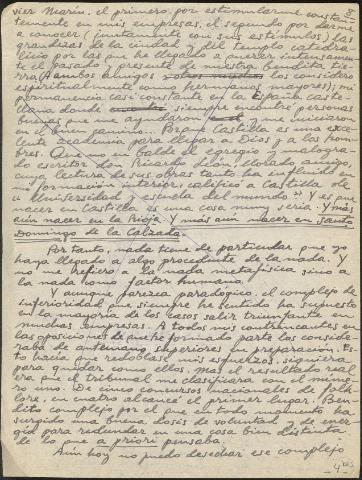 vier Marín, el primero, por estimularme constan-
temente en mis empresas, el segundo por darme
a conocer (juntamente con sus estímulos) las
grandezas de la ciudad y del templo catedra-
licio por los que he llegado a querer intensamen-
te el pasado y presente de nuestra bendita tie-
rra (A ambos amigos los considero
espiritualmente como hermanos mayores); mi
permanencia casi constante en la España caste-
llana donde siempre encontré personas
buenas que me ayudaron y me iniciaron
en el buen camino. Porque Castilla es una exce-
lente academia para llegar a Dios y a los hom-
bres. Que no en balde el egregio y malogra-
do escritor don Ricardo León, llorado amigo,
cuya lectura de sus obras tanto ha influido en
mi formación interior, calificó a Castilla de
« Universidad y escuela del mundo ». Y es que
nacer en Castilla es una cosa muy seria. Y más
aún nacer en la Rioja. Y más aún nacer en Santo
Domingo de la Calzada.
Por tanto, nada tiene de particular que yo
haya llegado a algo procedente de la nada. Y
no me refiero a la nada metafísica sino a
la nada como factor humano.
Y aunque parezca paradógico, el complejo de
inferioridad que siempre he sentido ha supuesto
en la mayoría de los casos salir triunfante en
muchas empresas. A todos mis contrincantes en
las oposiciones de que he formado parte los conside-
raba de antemano superiores en preparación. Es-
to hacía que redoblase mis esfuerzos, siquiera
para quedar como ellos. Mas el resultado real
era que el tribunal me clasificara con el núme-
ro uno. De cinco concursos nacionales de folk-
lore, en cuatro alcancé el primer lugar. Ben-
dito complejo por el que en todo momento ha
surgido una buena dosis de voluntad y de ener-
gía para redundar en una cosa bien distinta
de lo que a priori pensaba.
Aún hoy no puedo desechar ese complejo